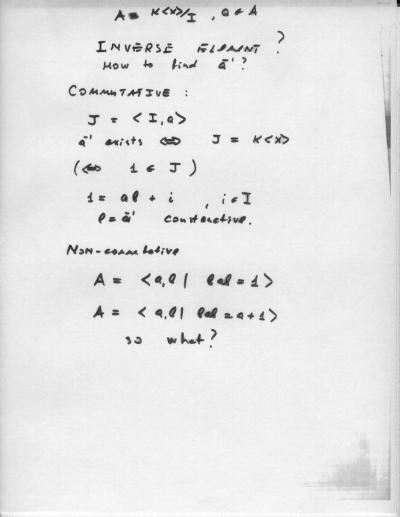 A = K<x>/I , a ∈ A
INVERSE ELEMENT ?
HOW to find a⁻¹ ?
COMMUTATIVE :
J = <I, a>
a⁻¹ exists ⇔ J = K<x>
(⇔ 1 ∈ J )
1 = al + i , i ∈ I
l = a⁻¹ constructive.
NON-commutative
A = < a, l | lal = 1 >
A = < a, l | lal = a + 1 >
so what?